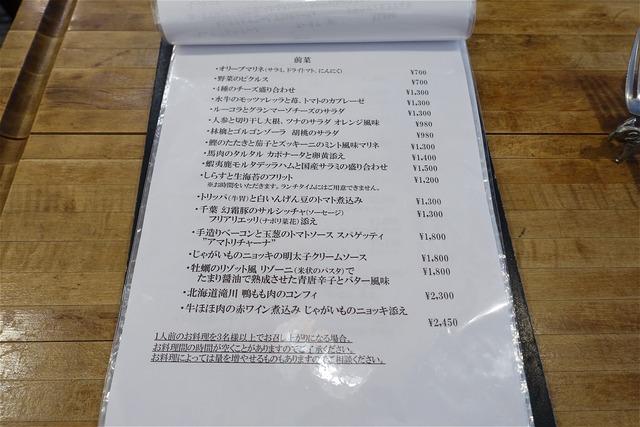 前菜
・オリーブマリネ(サラミ、ドライトマト、にんにく) ¥700
・野菜のピクルス ¥700
・4種のチーズ盛り合わせ ¥1,300
・水牛のモッツァレッラと苺、トマトのカプレーゼ ¥1,300
・ルーコラとグランマーゾチーズのサラダ ¥1,300
・人参と切り干し大根、ツナのサラダ オレンジ風味 ¥980
・林檎とゴルゴンゾーラ 胡桃のサラダ ¥980
・鰹のたたきと茄子とズッキーニのミント風味マリネ ¥1,300
・馬肉のタルタル カポナータと卵黄添え ¥1,400
・蝦夷鹿モルタデッラハムと国産サラミの盛り合わせ ¥1,500
・しらすと生海苔のフリット ¥1,200
※お時間をいただきます。ランチタイムにはご用意できません。
・トリッパ(牛胃)と白いんげん豆のトマト煮込み ¥1,300
・千葉 幻霜豚のサルシッチャ(ソーセージ) ¥1,300
フリアリエッリ(ナポリ菜花)添え
・手造りベーコンと玉葱のトマトソース スパゲッティ ¥1,800
"アマトリチャーナ"
・じゃがいものニョッキの明太子クリームソース ¥1,800
・牡蠣のリゾット風 リゾーニ(米状のパスタ)で ¥1,800
たまり醤油で熟成させた青唐辛子とバター風味
・北海道滝川 鴨もも肉のコンフィ ¥2,300
・牛ほほ肉の赤ワイン煮込み じゃがいものニョッキ添え
¥2,450
1人前のお料理を3名様以上でお召し上がりになる場合、
お料理間の時間が空くことがありますのでご了承ください。
お料理によっては量を増やせるものもありますのでご相談ください。